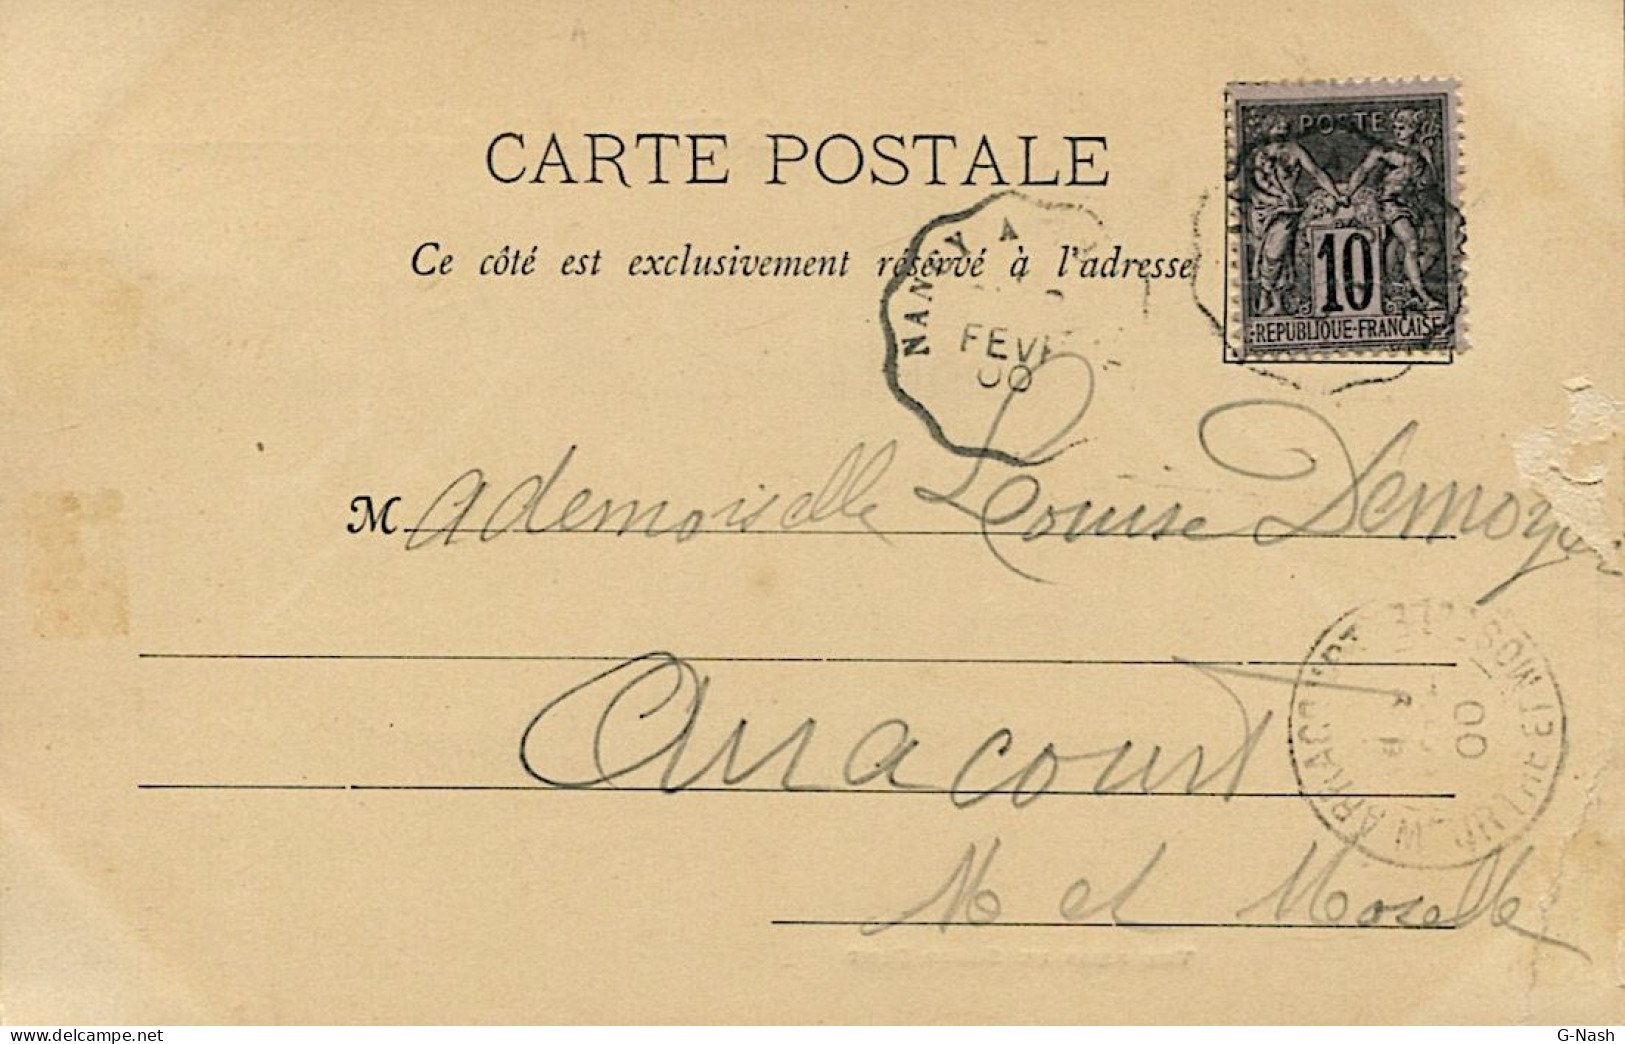 CARTE POSTALE
Ce côté est exclusivement réservé à l'adresse
POSTE
10
REPUBLIQUE-FRANCAISE
NANCY A
FEVR
00
Mademoiselle Louise Demoyen
Arracourt
M et Moselle
ARRACOURT
MEURTHE ET MOSELLE
00
delcampe.net
G-Nash